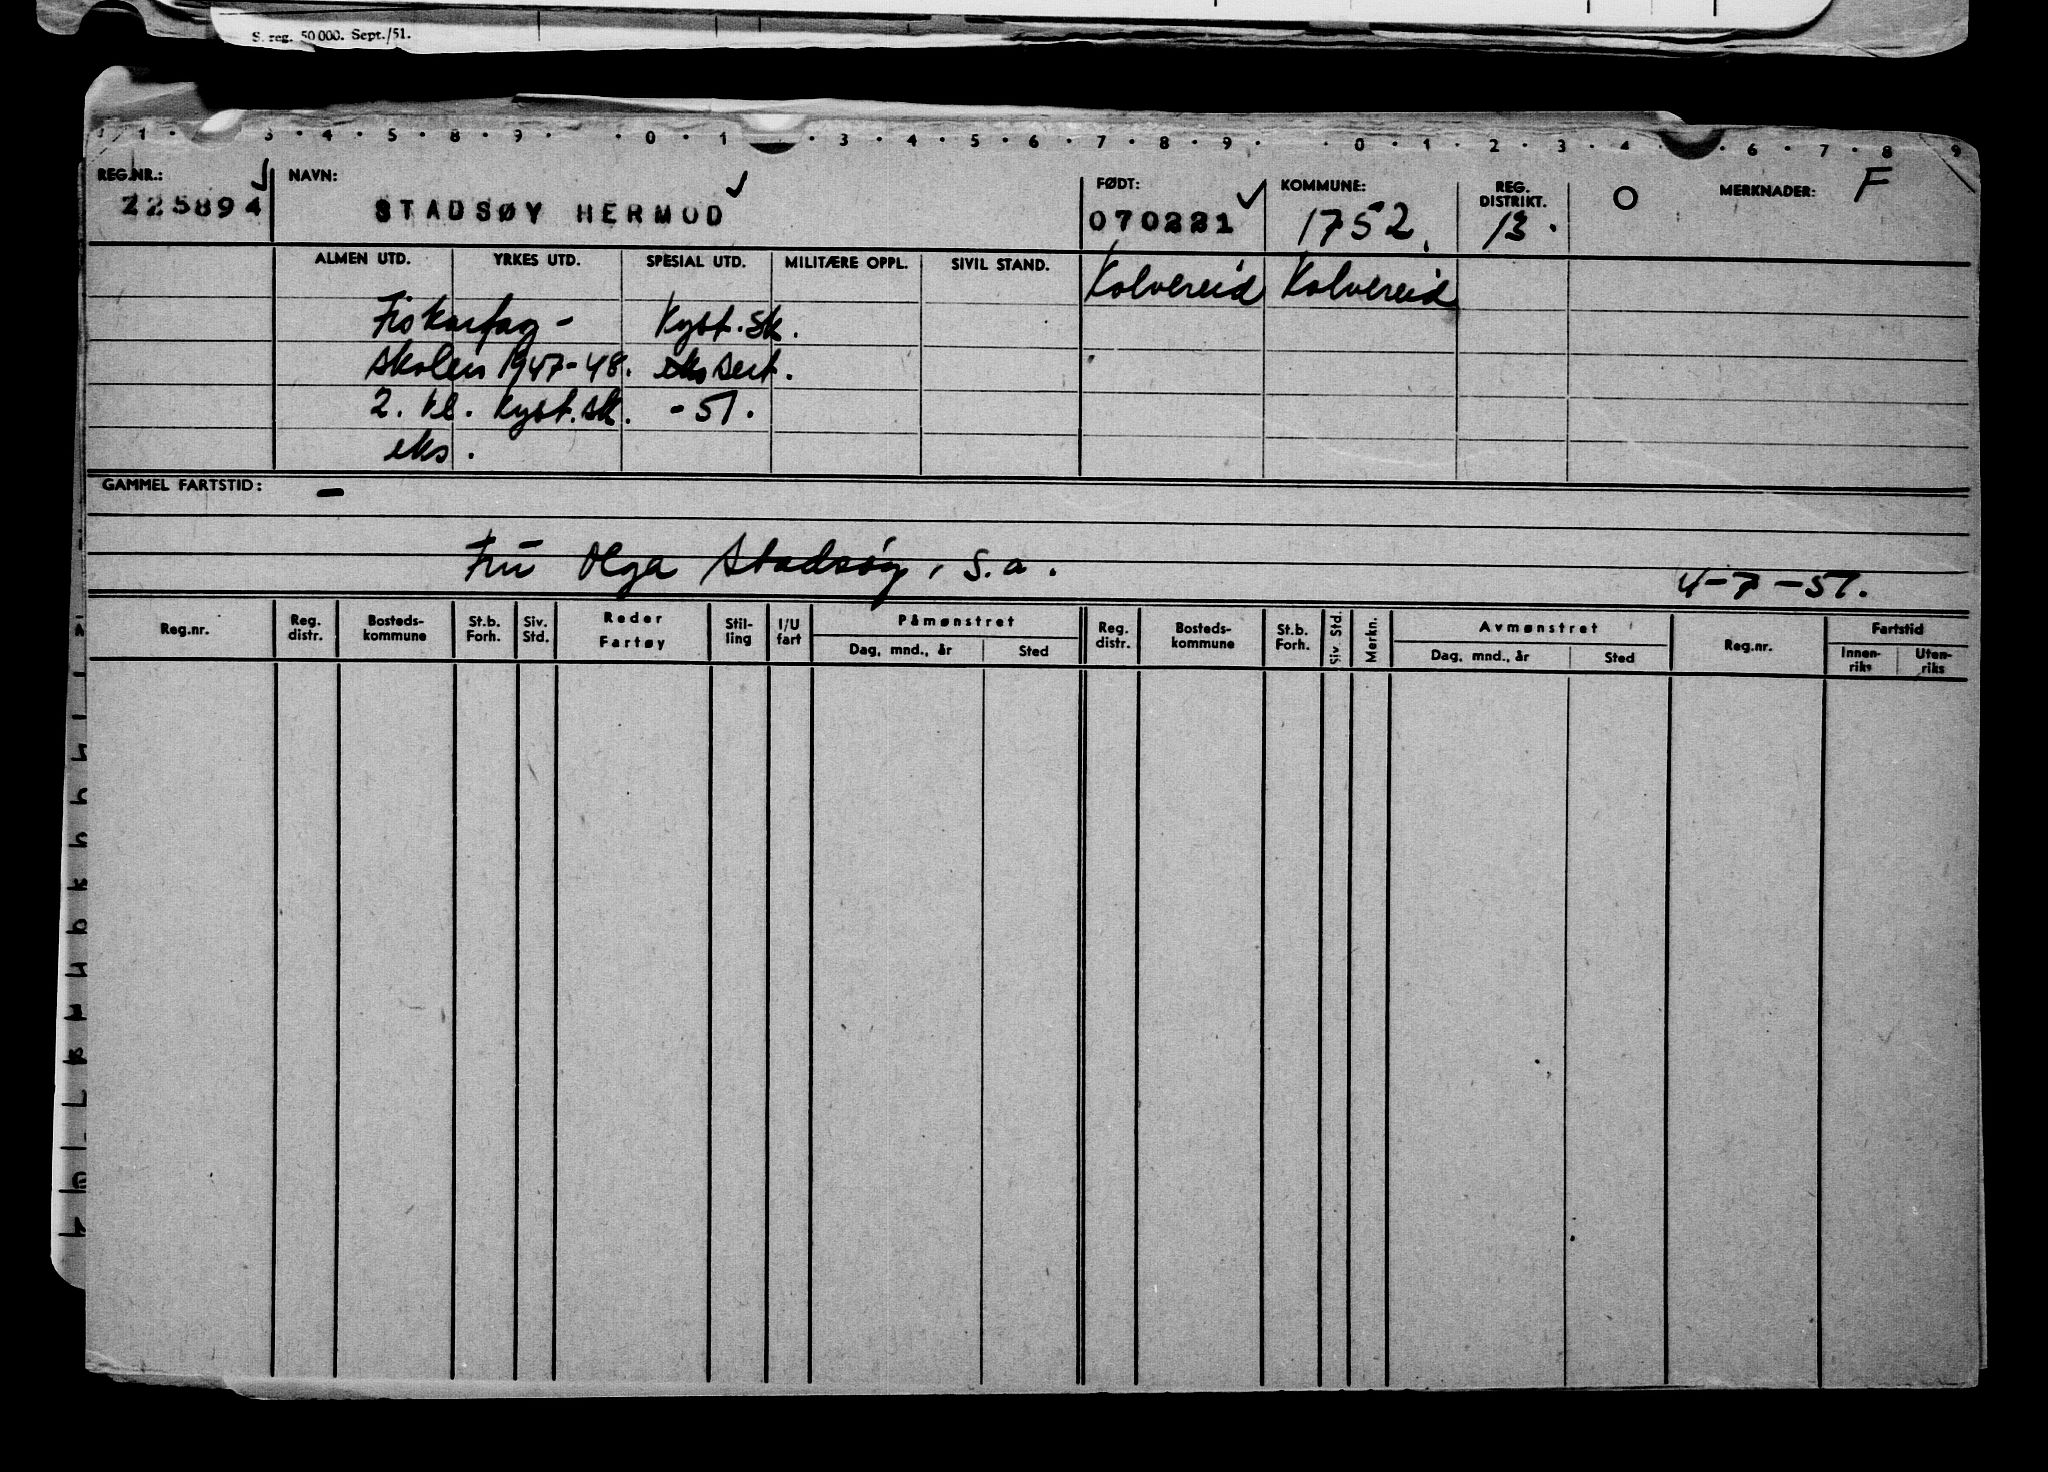 S. reg. 50 000. Sept./51.
1 . 3 . 4 . 5 . 8 . 9 . . 0 . 1 . 3 . 4 . 5 . 6 . 7 . 8 . 9 . . 0 . 1 . 2 . 3 . 4 . 6 . 7 . 8 9
REG.NR.: NAVN: FØDT: KOMMUNE: REG. DISTRIKT. O MERKNADER: F
225894 STADSØY HERMOD 070221 1752. 13.
ALMEN UTD. YRKES UTD. SPESIAL UTD. MILITÆRE OPPL. SIVIL STAND. Kolvereid Kolvereid
Fiskarfag- Kyst.sk.
skolen 1947-48. eks sert.
2. kl. kyst.sk. -51.
eks.
GAMMEL FARTSTID: -
Fru Olga Stadsøy, S.a.
4-7-51.
Reg.nr. Reg. distr. Bosteds-kommune St.b. Forh. Siv. Std. Reder Fartøy Stil-ling I/U fart Påmønstret Dag, mnd., år Sted Reg. distr. Bosteds-kommune St.b. Forh. Siv. Std. Merkn. Avmønstret Dag, mnd., år Sted Reg.nr. Fartstid Innen-riks Uten-riks